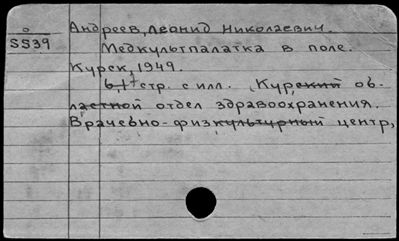 о Андреев, Леонид Николаевич.
5539 Медкультпалатка в поле.
Курск, 1949.
61 стр. с илл. Курский об-
ластной отдел здравоохранения.
Врачебно-физкультурный центр,